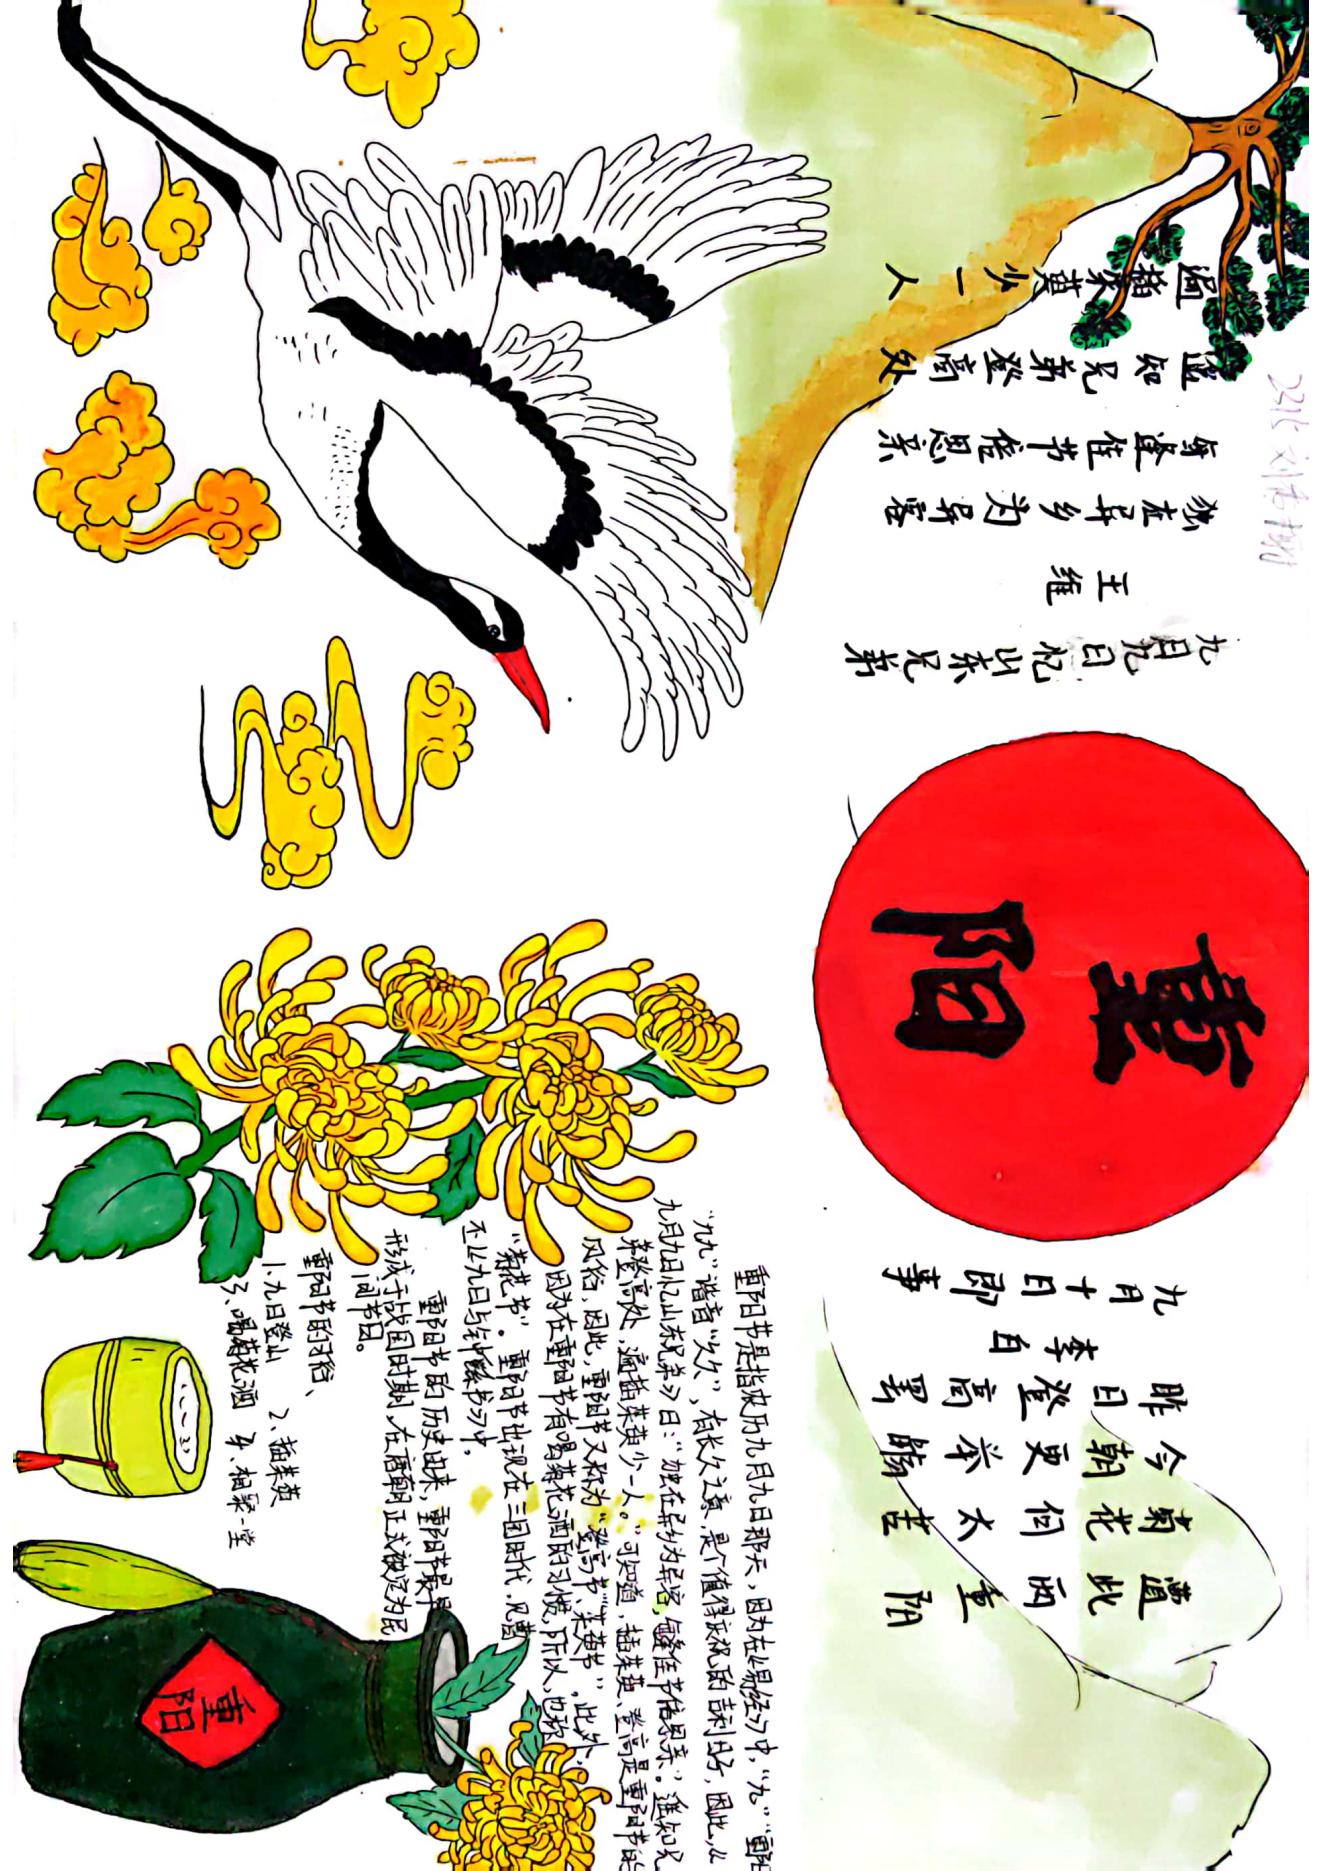 2315 刘
重阳
九月九日忆山东兄弟
王维
独在异乡为异客
每逢佳节倍思亲
遥知兄弟登高处
遍插茱萸少一人
九月十日即事
李白
昨日登高罢
今朝更举觞
菊花何太苦
遭此两重阳
重阳节是指农历九月九日那天，因为在《易经》中，“九”“重阳
“九九”谐音“久久”，有长久之意，是个值得庆祝的吉利日子，因此，《
九月九日忆山东兄弟》曰：“独在异乡为异客，每逢佳节倍思亲”。遥知兄
弟登高处，遍插茱萸少一人。”可知道，插茱萸、登高是重阳节的
风俗，因此，重阳节又称为“登高节”“茱萸节”，此外，
因为在重阳节有喝菊花酒的习惯，所以，也称
“菊花节”。重阳节出现在三国时代，见曹
丕《九日与钟繇书》中。
重阳节的历史由来，重阳节最早
形成于战国时期，在唐朝正式被定为民
间节日。
重阳节的习俗、
1、九日登山 2、插茱萸
3、喝菊花酒 4、相聚一堂
重阳